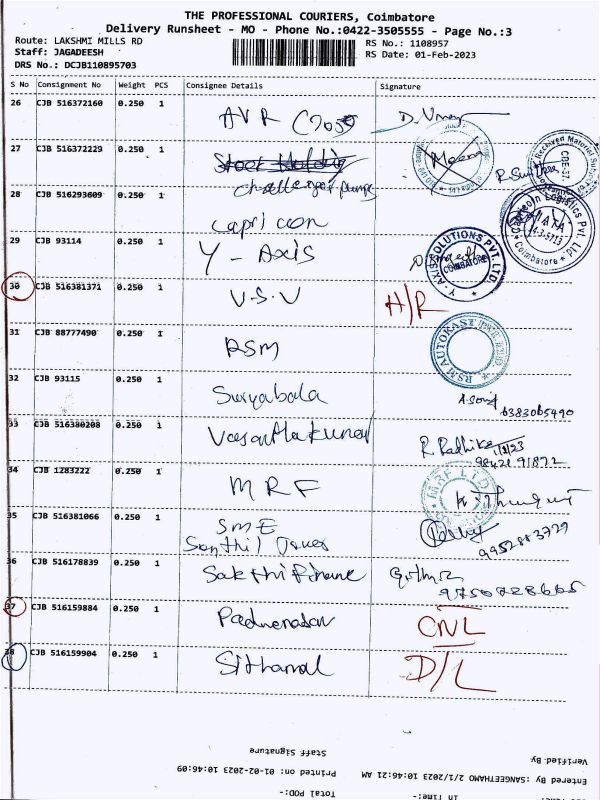 THE PROFESSIONAL COURIERS, Coimbatore
Delivery Runsheet - MO - Phone No.:0422-3505555 - Page No.:3
Route: LAKSHMI MILLS RD
RS No.: 1108957
Staff: JAGADEESH
RS Date: 01-Feb-2023
DRS No.: DCJB110895703
S No Consignment No Weight PCS Consignee Details Signature
26 CJB 516372160 0.250 1 AVR
27 CJB 516372229 0.250 1
28 CJB 516293609 0.250 1 Capricon
29 CJB 93114 0.250 1 Y - Axis
Y AXIS SOLUTIONS PVT. LTD. COIMBATORE
30 CJB 516381371 0.250 1 V.S.V H/R
31 CJB 88777490 0.250 1 RSM
32 CJB 93115 0.250 1 Suryabala
6383065490
33 CJB 516380208 0.250 1 Vasanthakumar R. Radhika 1/2/23
98421 91872
34 CJB 1283222 0.250 1 MRF MRF LTD
35 CJB 516381066 0.250 1 SME
9952883729
36 CJB 516178839 0.250 1
37 CJB 516159884 0.250 1 CNL
38 CJB 516159904 0.250 1 D/L
Staff Signature
Verified By:
Printed on: 01-02-2023 10:46:09
Entered By :SANGEETHAMO 2/1/2023 10:46:21 AM
Total POD:-
In Time:-